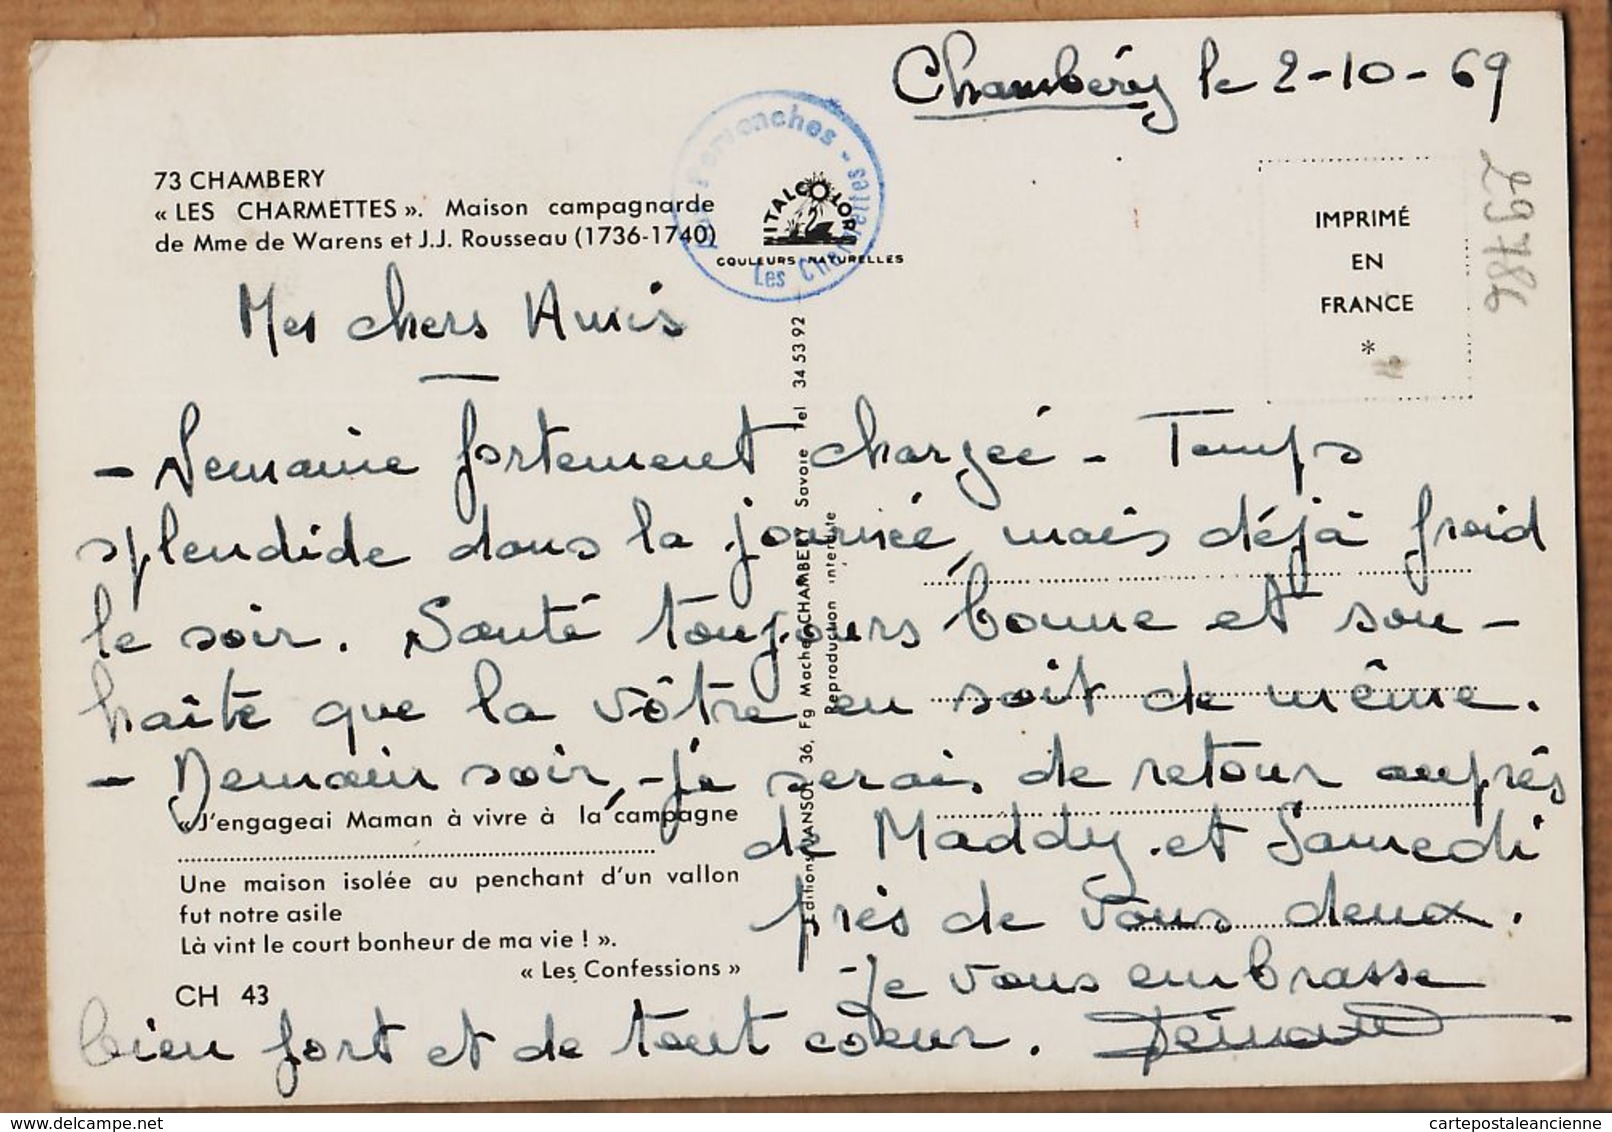 Chambéry le 2-10-69
73 CHAMBERY
« LES CHARMETTES ». Maison campagnarde
de Mme de Warens et J.J. Rousseau (1736-1740)
Pervenches - Les Charmettes
VITALCOLOR
COULEURS NATURELLES
IMPRIMÉ
EN
FRANCE
*
29786
Mes chers Amis
- Semaine fortement chargée - Temps
splendide dans la journée, mais déjà froid
le soir. Santé toujours bonne et sou-
haite que la vôtre en soit de même.
- Demain soir, je serais de retour auprès
de Maddy et Samedi
près de vous deux.
Je vous embrasse
bien fort et de tout cœur.
« J'engageai Maman à vivre à la campagne
Une maison isolée au penchant d'un vallon
fut notre asile
Là vint le court bonheur de ma vie ! ».
« Les Confessions »
CH 43
Editions 36, Fg Maché CHAMBERY Savoie Tel 34 53 92
Reproduction interdite
www.delcampe.net
cartepostaleancienne